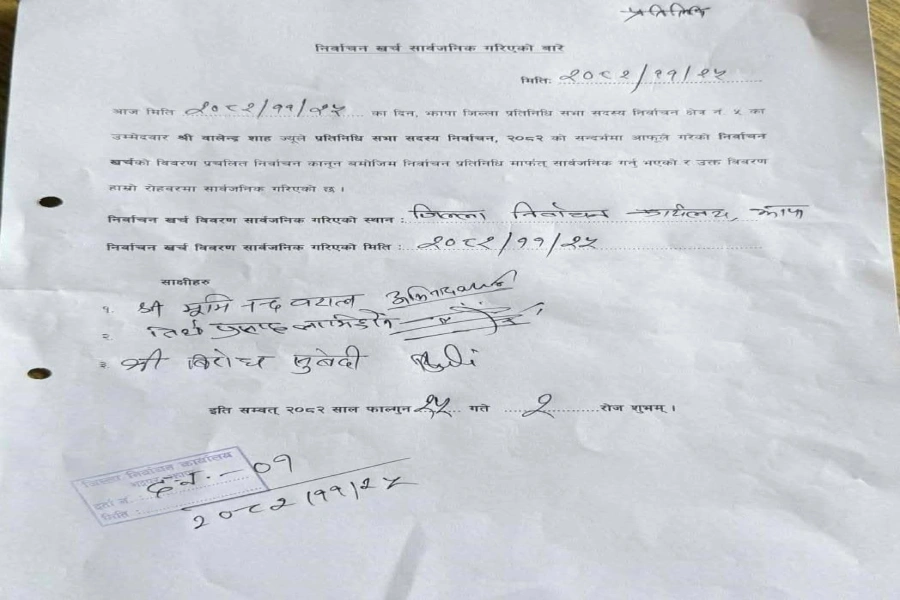 प्रतिलिपि
निर्वाचन खर्च सार्वजनिक गरिएको बारे
मितिः २०८२/११/२५
आज मिति २०८२/११/२५ का दिन, झापा जिल्ला प्रतिनिधि सभा सदस्य निर्वाचन क्षेत्र नं. ५ का
उम्मेदवार श्री वालेन्द्र शाह ज्यूले प्रतिनिधि सभा सदस्य निर्वाचन, २०८२ को सन्दर्भमा आफूले गरेको निर्वाचन
खर्चको विवरण प्रचलित निर्वाचन कानून बमोजिम निर्वाचन प्रतिनिधि मार्फत् सार्वजनिक गर्नु भएको र उक्त विवरण
हाम्रो रोहवरमा सार्वजनिक गरिएको छ ।
निर्वाचन खर्च विवरण सार्वजनिक गरिएको स्थान : जिल्ला निर्वाचन कार्यालय, झापा
निर्वाचन खर्च विवरण सार्वजनिक गरिएको मिति : २०८२/११/२५
साक्षीहरु
१. श्री
२.
३. श्री विरोध सुवेदी
इति सम्वत् २०८२ साल फाल्गुन २५ गते २ रोज शुभम् ।
जिल्ला निर्वाचन कार्यालय
दर्ता नं. : द.नं. - ०१
मिति : २०८२।११।२५